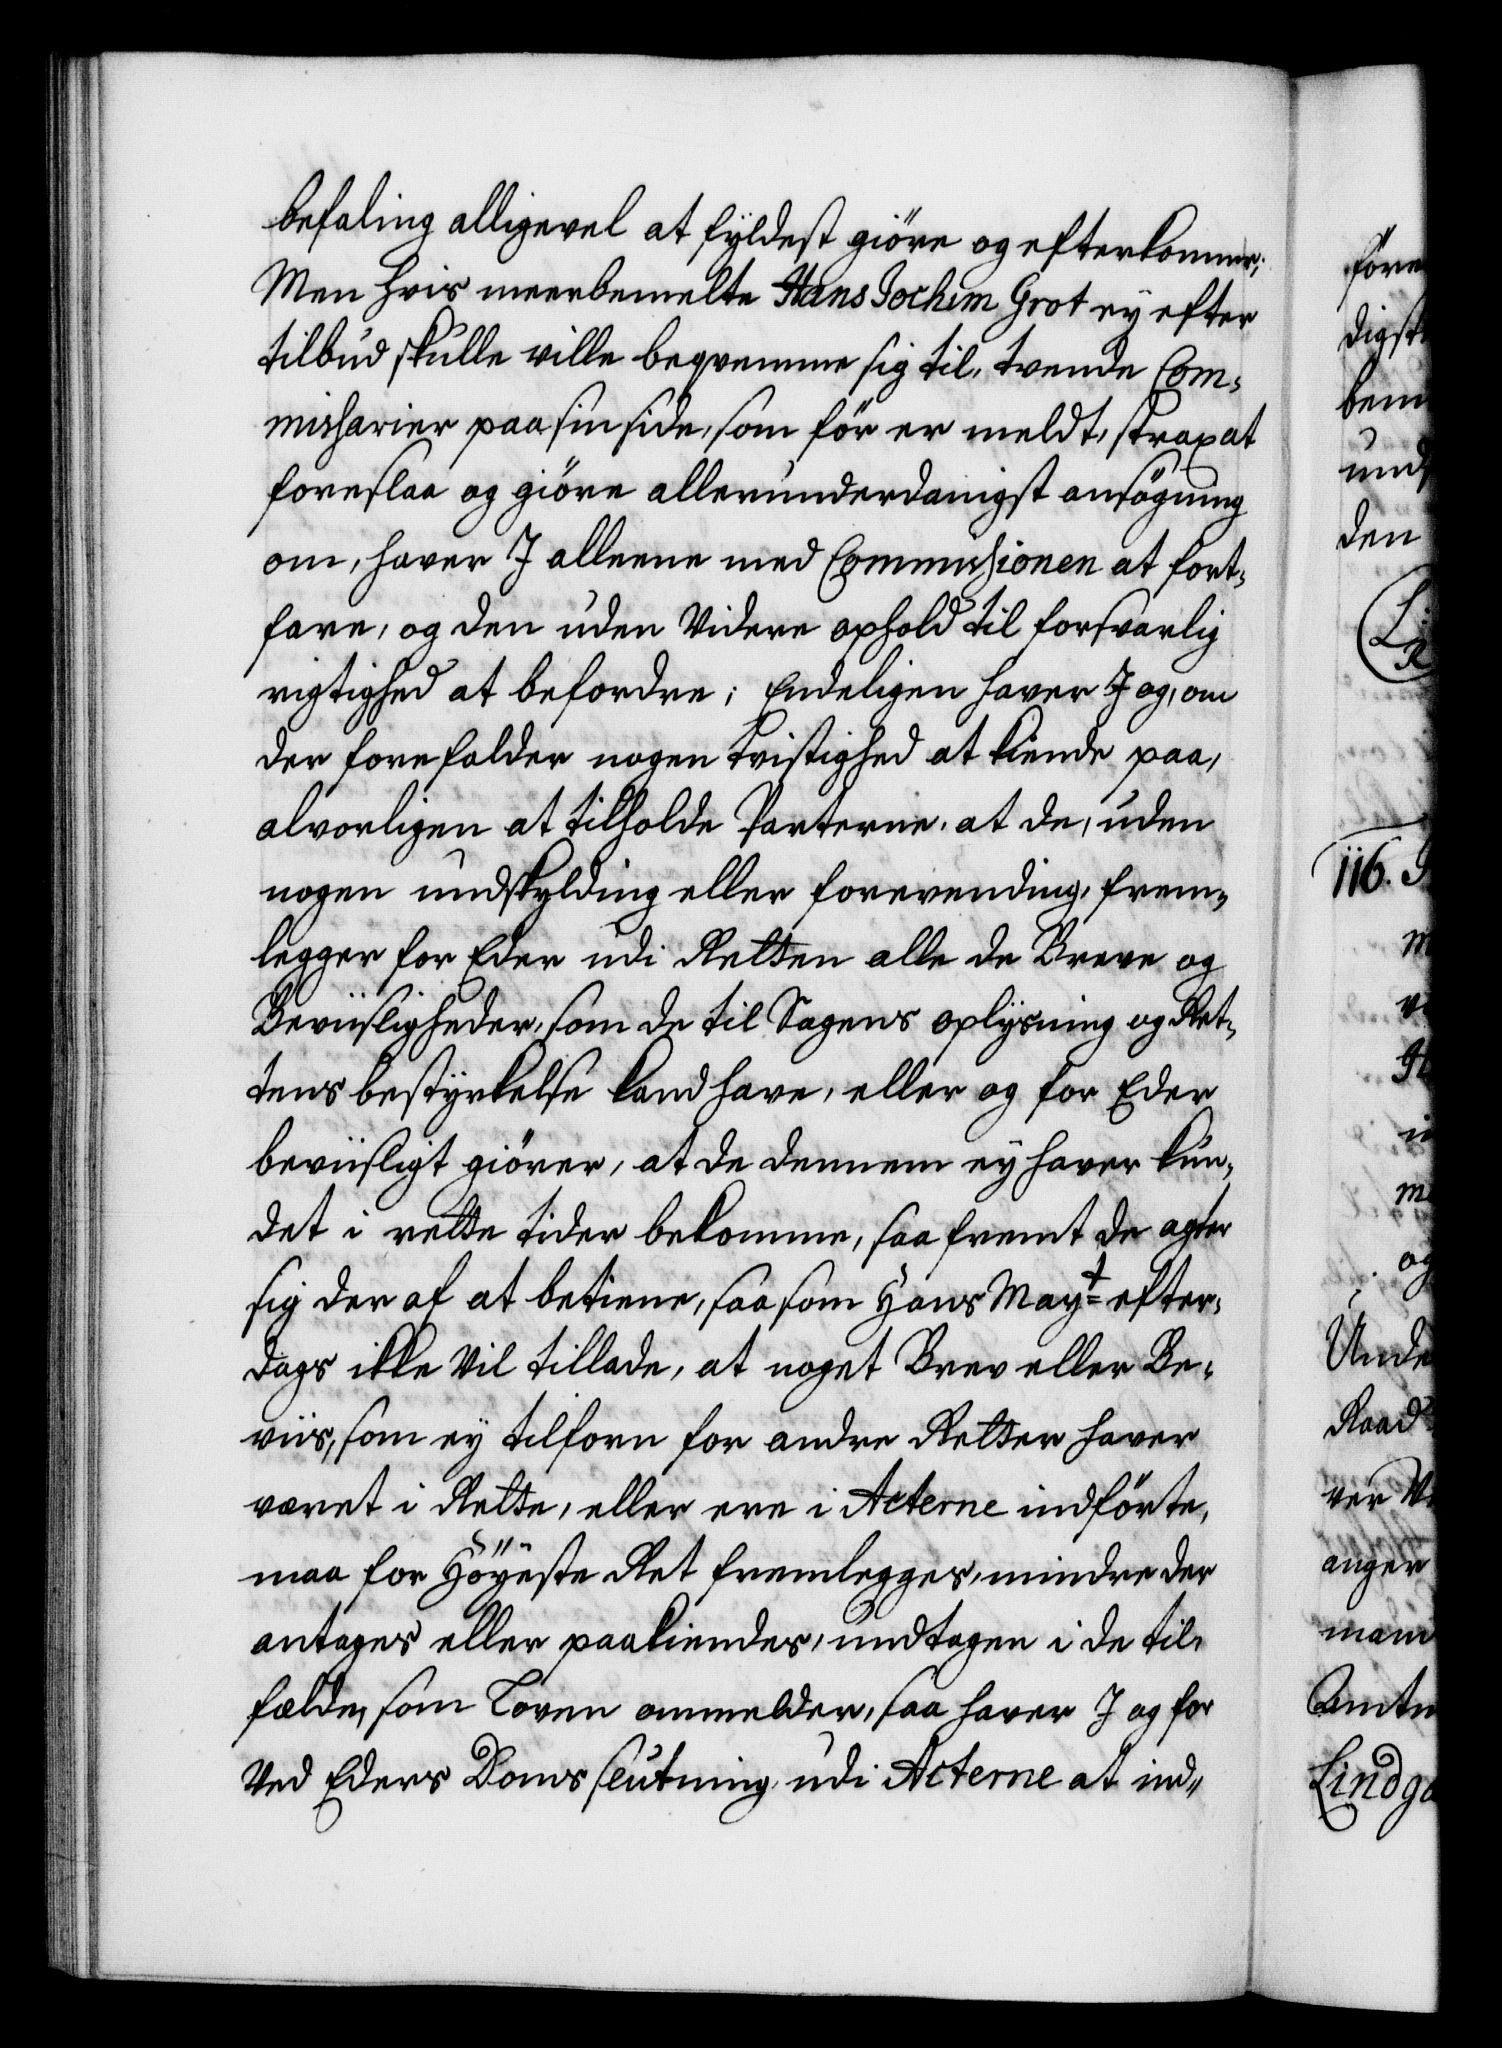 befaling alligevel at fyldest giöre og efterkomme;
Men hvis meerbemelte Hans Jochim Grot ey efter
tilbud skulle ville beqvemme sig til, tvende Com-
missarier paa sin side, som för er meldt, strax at
foreslaa og giöre allerunderdanigst ansögning
om, haver I alleene med Commissionen at fort-
fare, og den uden Videre ophold til forsvarlig
rigtighed at befordre; Endeligen haver I og, om
der forefalder nogen tvistighed at kiende paa,
alvorligen at tilholde Parterne, at de, uden
nogen undskylding eller forevending, frem-
legger for Eder udi Retten alle de Breve og
Beviisligheder, som de til Sagens oplysning og Ret-
tens bestyrkelse kand have, eller og for Eder
beviisligt giörer, at de dennem ey haver kun-
det i rette tider bekomme, saafremt de agter
sig der af at betiene, saasom Hans May.t efter-
dags ikke Vil tillade, at noget Brev eller Be-
viis, som ey tilforn for andre Retter haver
været i Rette, eller ere i Acterne indförte,
maa for Höyeste Ret fremlegges, mindre der
antages eller paakiendes, undtagen i de til-
fælde, som Loven ommelder, saa haver I og for
Ved Eders Doms slutning, udi Acterne at ind-
före
digst
bem
und
den
116.
m
og
Unde
Raad
ver
anger
mam
Amtm
Lindga